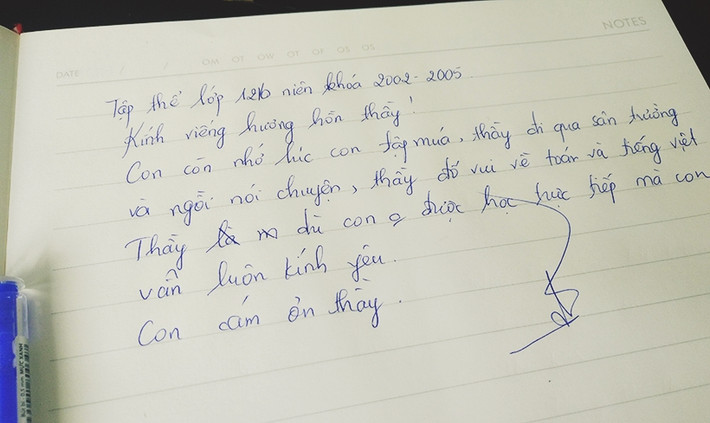 NOTES
DATE / /
Tập thể lớp 12B niên khóa 2002-2005
Kính viếng hương hồn thầy!
Con còn nhớ lúc con tập múa, thầy đi qua sân trường
và ngồi nói chuyện, thầy đố vui về toán và tiếng việt
Thầy là m dù con được học trực tiếp mà con
vẫn luôn kính yêu.
Con cám ơn thầy.